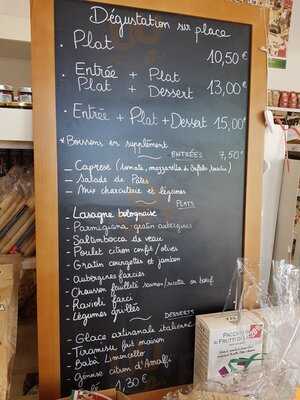 Dégustation sur place
. Plat 10,50 €
. Entrée + Plat
Plat + Dessert 13,00 €
. Entrée + Plat + Dessert 15,00 €
* Boissons en supplément
ENTRÉES 7,50 €
_ Caprese (tomate, mozzarella di Buffala, basilic)
_ Salade de Pâtes
_ Mix charcuterie et légumes
PLATS
_ Lasagne bolognaise
_ Parmigiana gratin aubergines
_ Saltimbocca de veau
_ Poulet citron confit / olives
_ Gratin courgettes et jambon
_ Aubergines farcies
_ Chausson feuilleté saumon/ricotta en bœuf
_ Ravioli farci
_ Légumes grillés
DESSERTS
_ Glace artisanale italienne
_ Tiramisu fait maison
_ Baba Limoncello
_ Génoise citron d'Amalfi
1,30 €